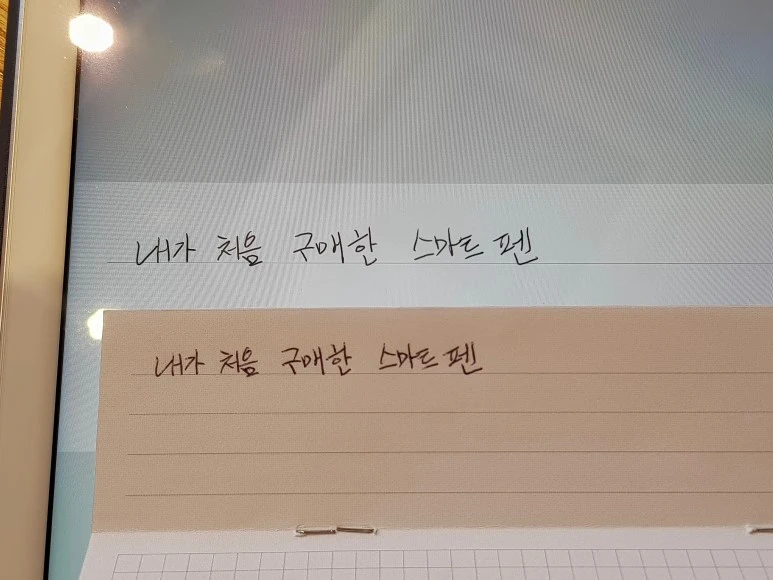 내가 처음 구매한 스마트 펜
내가 처음 구매한 스마트 펜